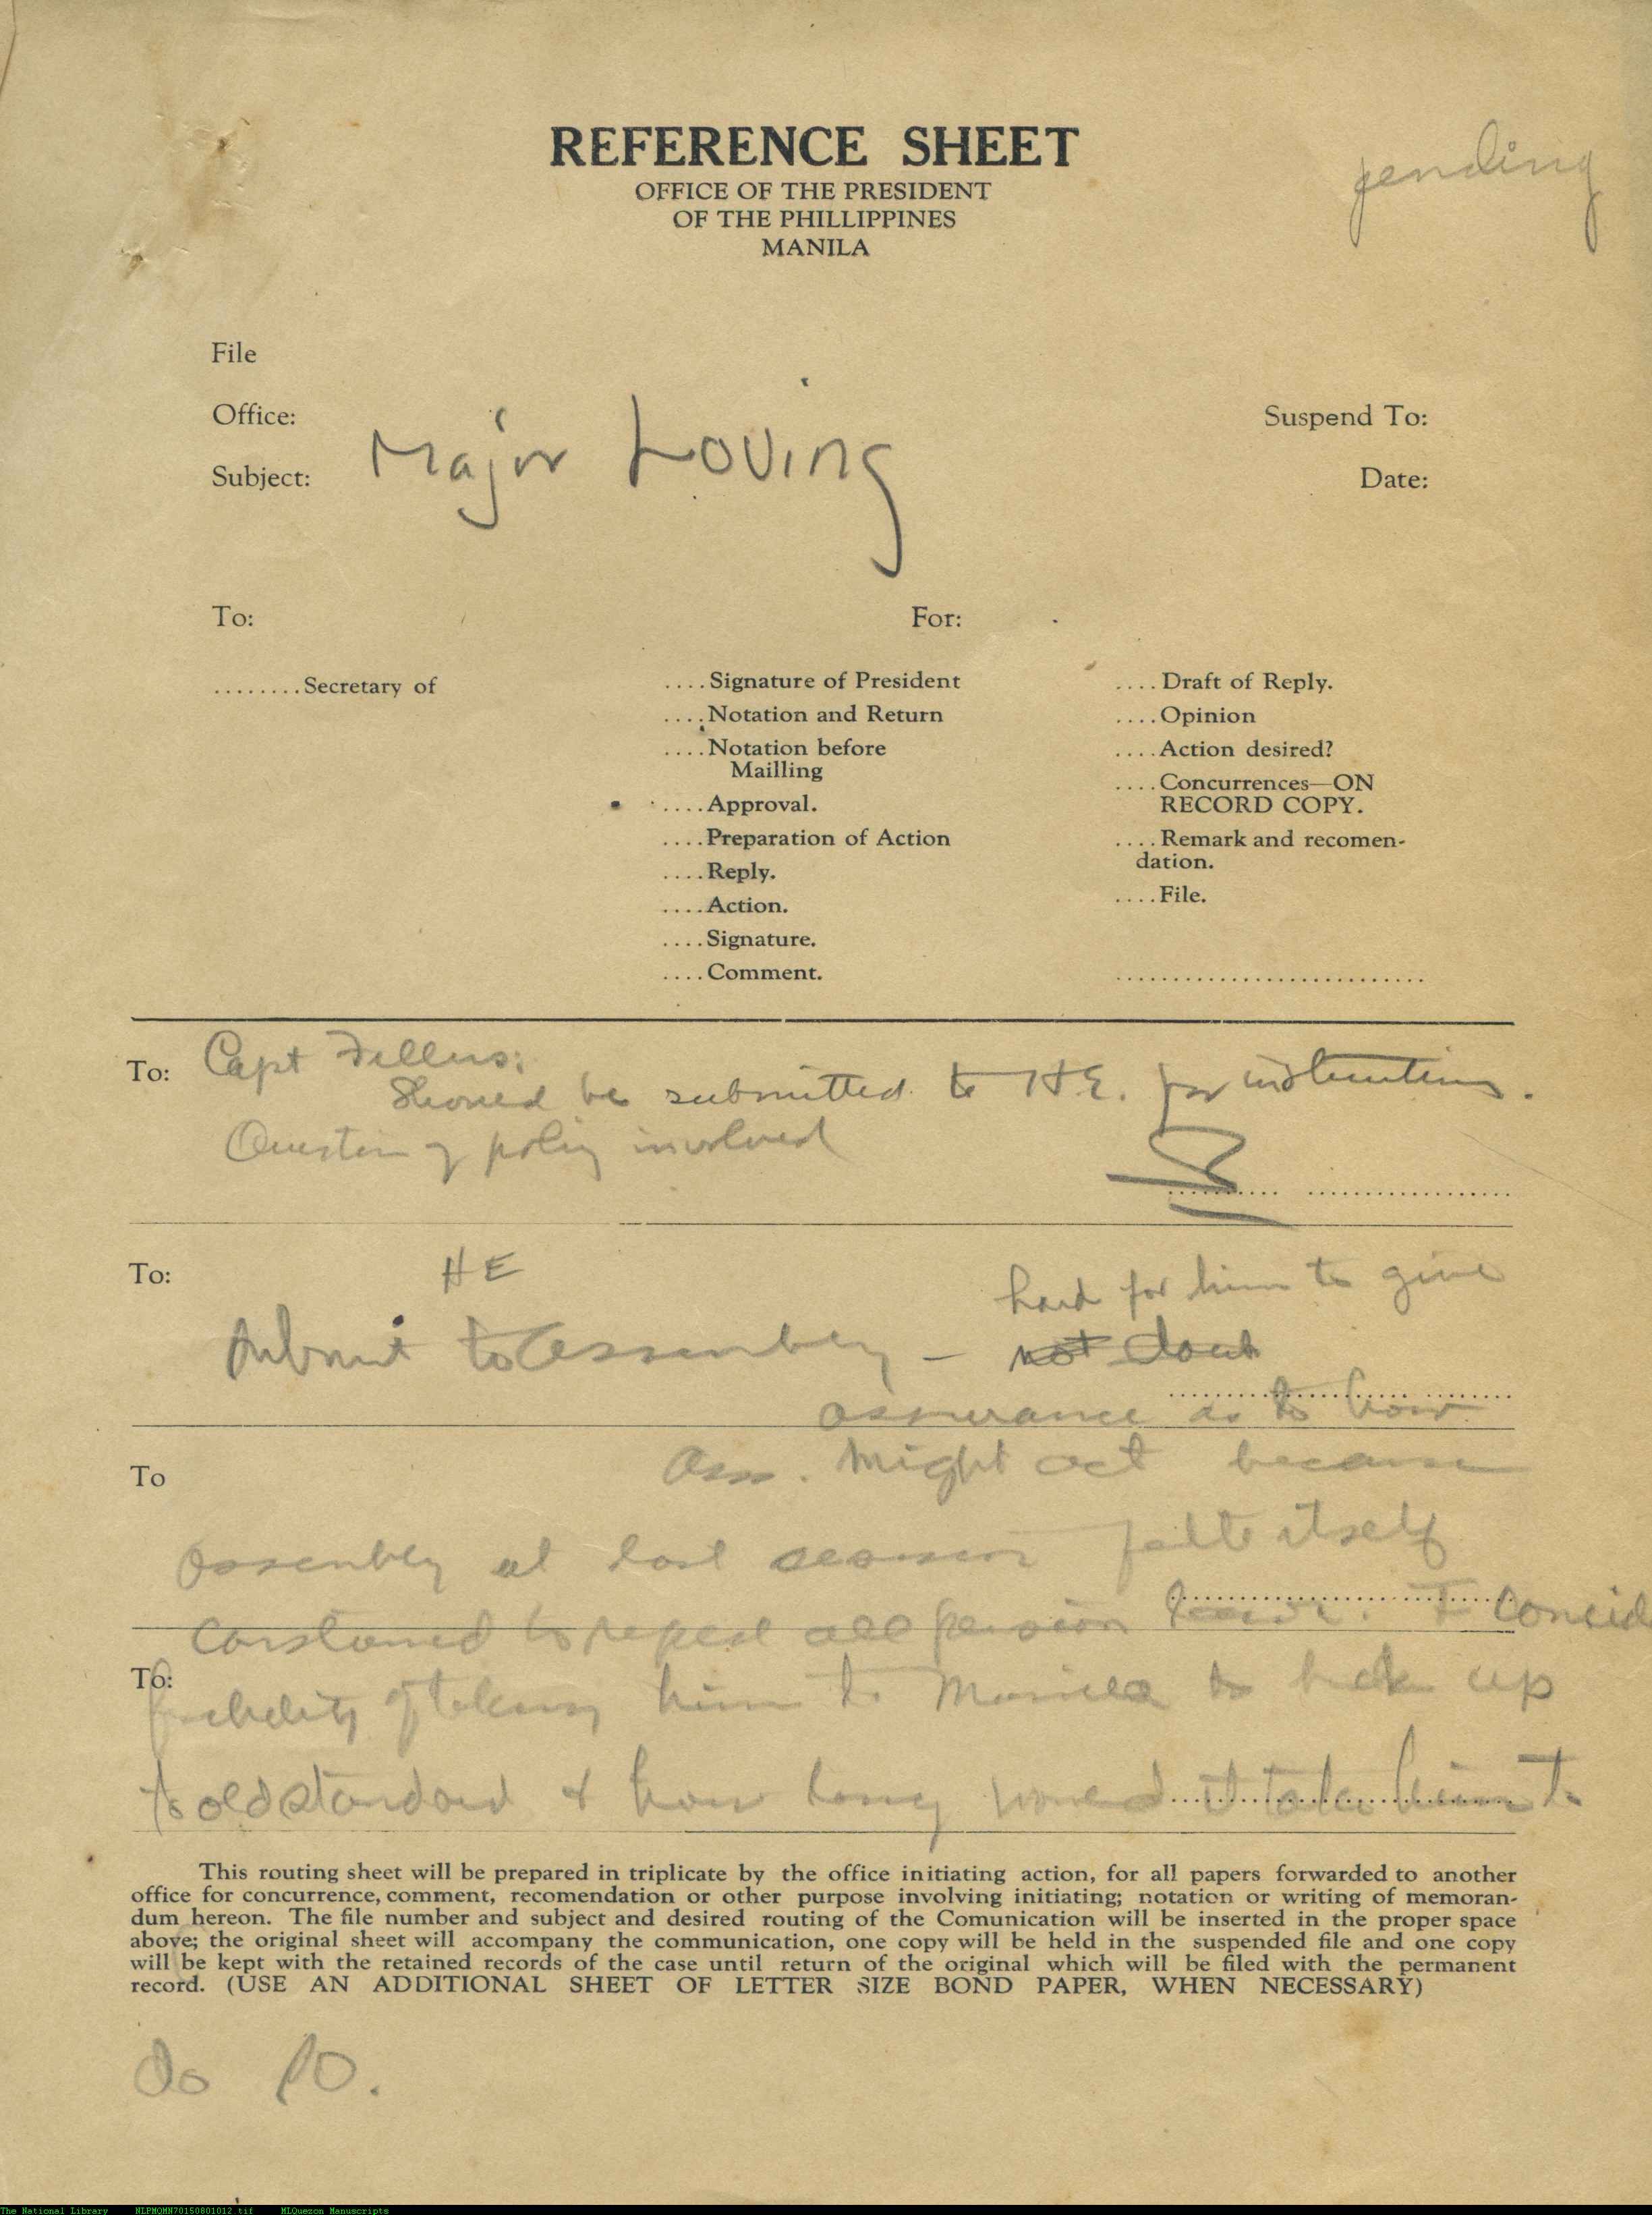 pending
REFERENCE SHEET
OFFICE OF THE PRESIDENT
OF THE PHILLIPPINES
MANILA
File
Office:
Suspend To:
Subject: Major Loving
Date:
To:
For:
........Secretary of
....Signature of President
....Notation and Return
....Notation before
Mailling
....Approval.
....Preparation of Action
....Reply.
....Action.
....Signature.
....Comment.
....Draft of Reply.
....Opinion
....Action desired?
....Concurrences—ON
RECORD COPY.
....Remark and recomen-
dation.
....File.
To: Capt Fellers:
Should be submitted to H.E. for instructions.
Question of policy involved
To: HE
hard for him to give
Submit to Assembly – not
assurance as to how
To
Ass. might act because
Assembly at last session felt itself
to repeal all pension laws. To consid
To:
of taking him to Manila to back up
to old standard & how long would it take him to
This routing sheet will be prepared in triplicate by the office initiating action, for all papers forwarded to another
office for concurrence, comment, recomendation or other purpose involving initiating; notation or writing of memoran-
dum hereon. The file number and subject and desired routing of the Comunication will be inserted in the proper space
above; the original sheet will accompany the communication, one copy will be held in the suspended file and one copy
will be kept with the retained records of the case until return of the original which will be filed with the permanent
record. (USE AN ADDITIONAL SHEET OF LETTER SIZE BOND PAPER, WHEN NECESSARY)
do so.
The National Library NLPMQMN70150801012.tif MLQuezon Manuscripts